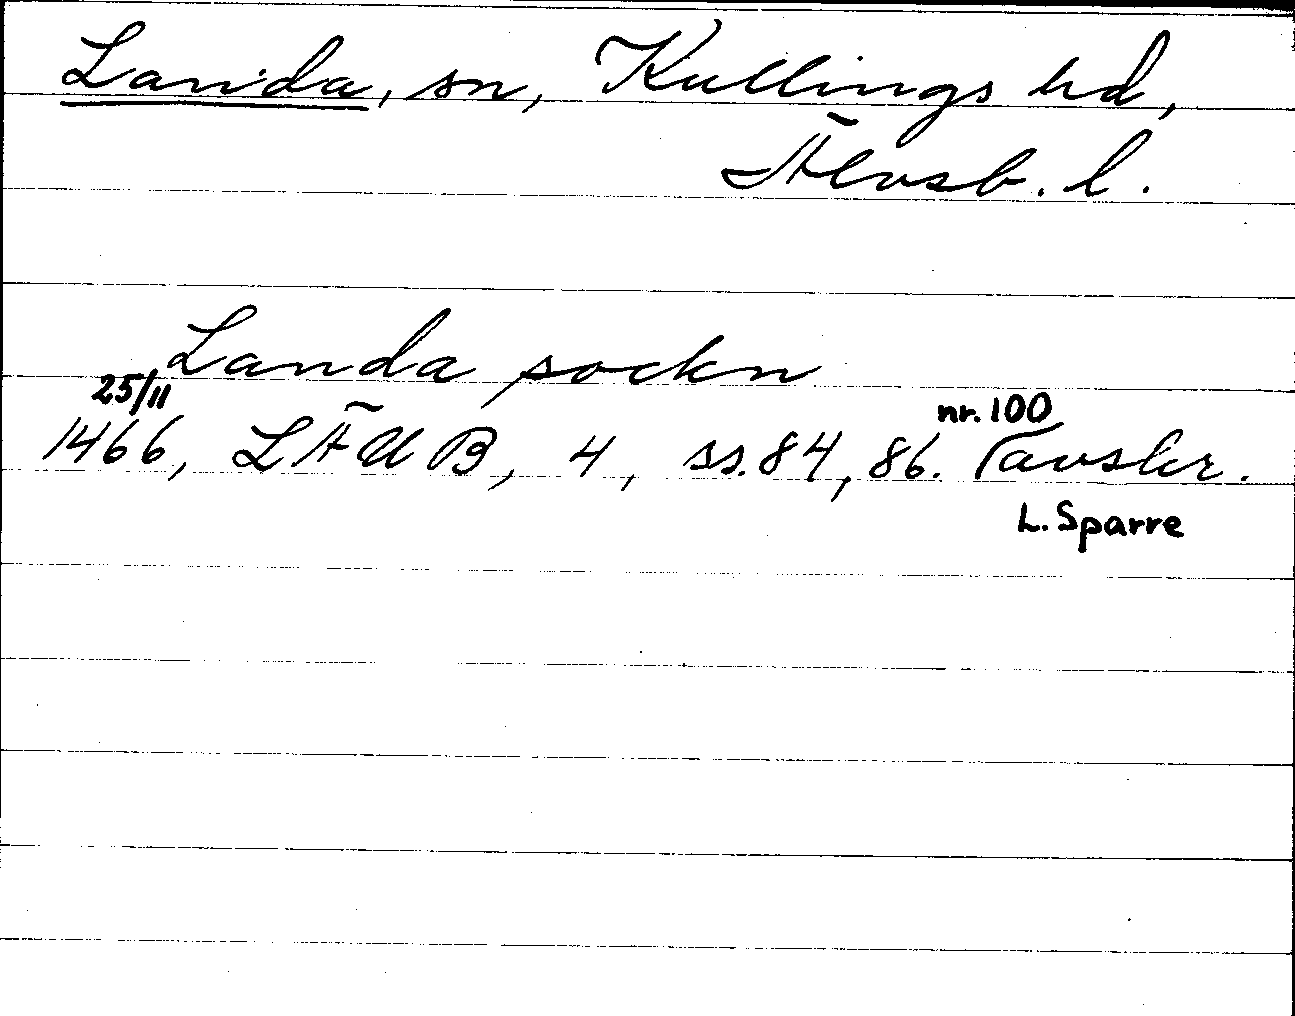 Landa, sn, Kullings hd,
Älvsb. l.
Landa sockn
25/11
nr. 100
1466, LÄUB, 4, ss. 84, 86. (avskr.
L. Sparre